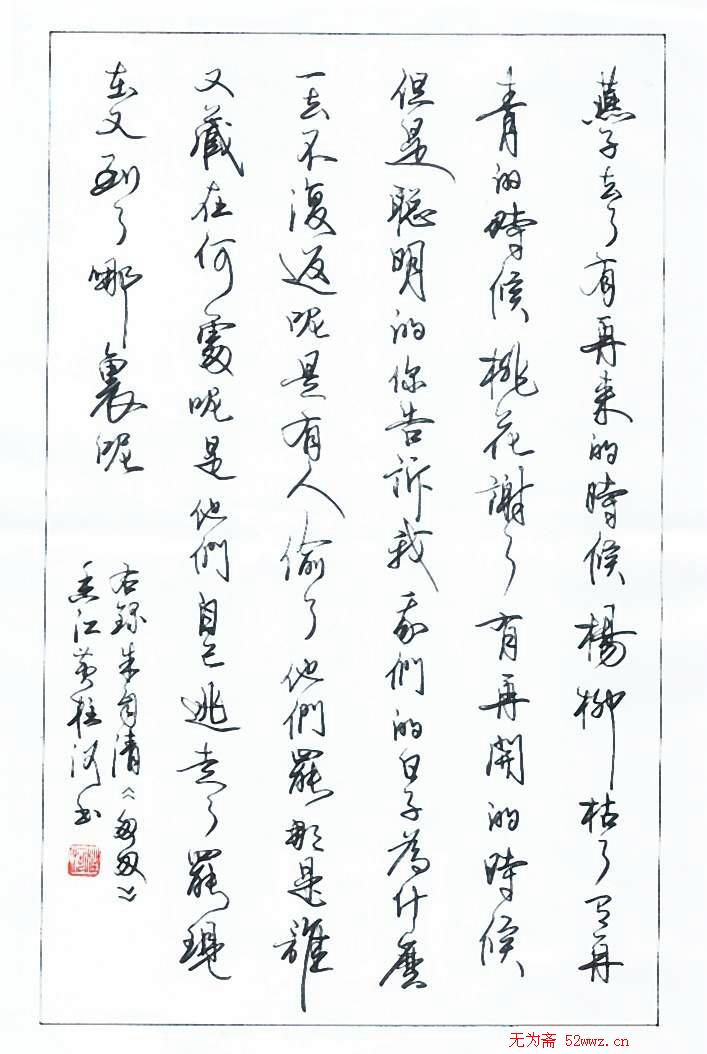 燕子去了有再来的時候楊柳枯了有再
青的時候桃花謝了有再開的時候
但是聪明的你告訴我我們的日子為什麼
一去不復返呢是有人偷了他們罷那是誰
又藏在何處呢是他們自己逃走了罷現
在又到了哪裏呢
右録朱自清《匆匆》
香江黄柱河书
无为斋 52wwz.cn